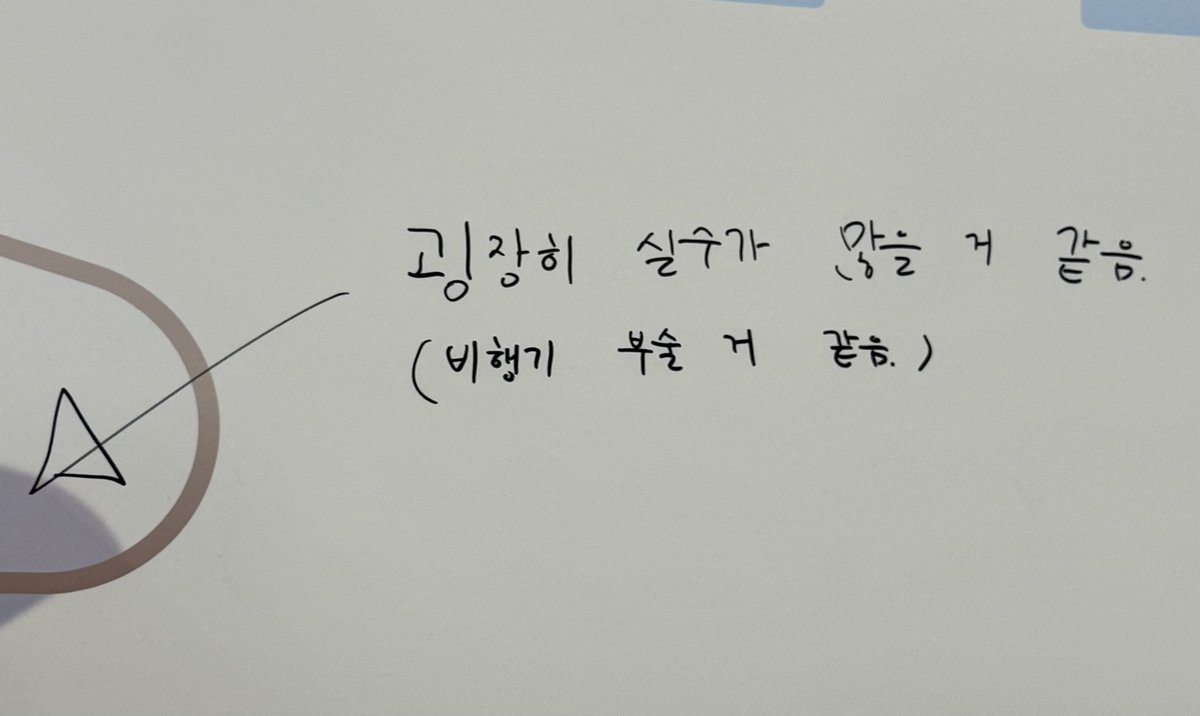 굉장히 실수가 많을 거 같음.
(비행기 부술 거 같음.)